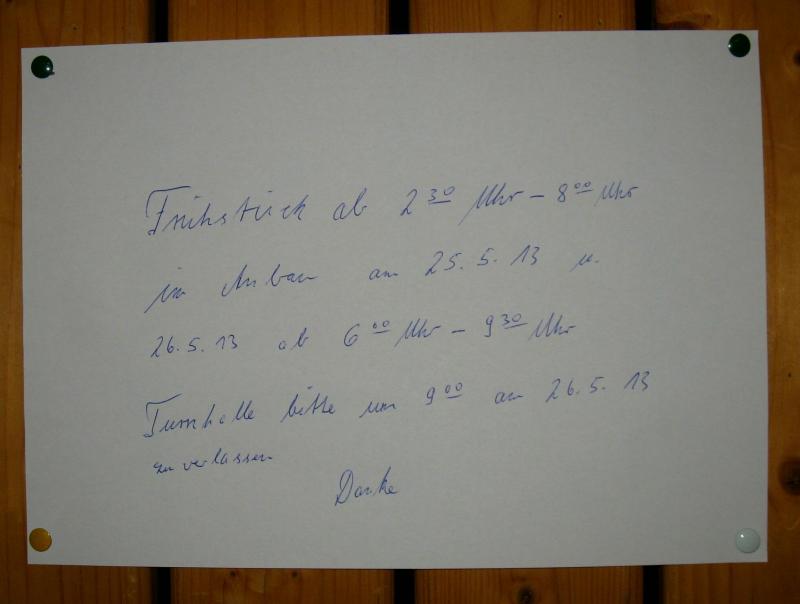 Frühstück ab 2 30 Uhr – 8 00 Uhr
im Anbau am 25.5.13 u.
26.5.13 ab 6 00 Uhr – 9 30 Uhr
Turnhalle bitte um 9 00 am 26.5.13
zu verlassen
Danke